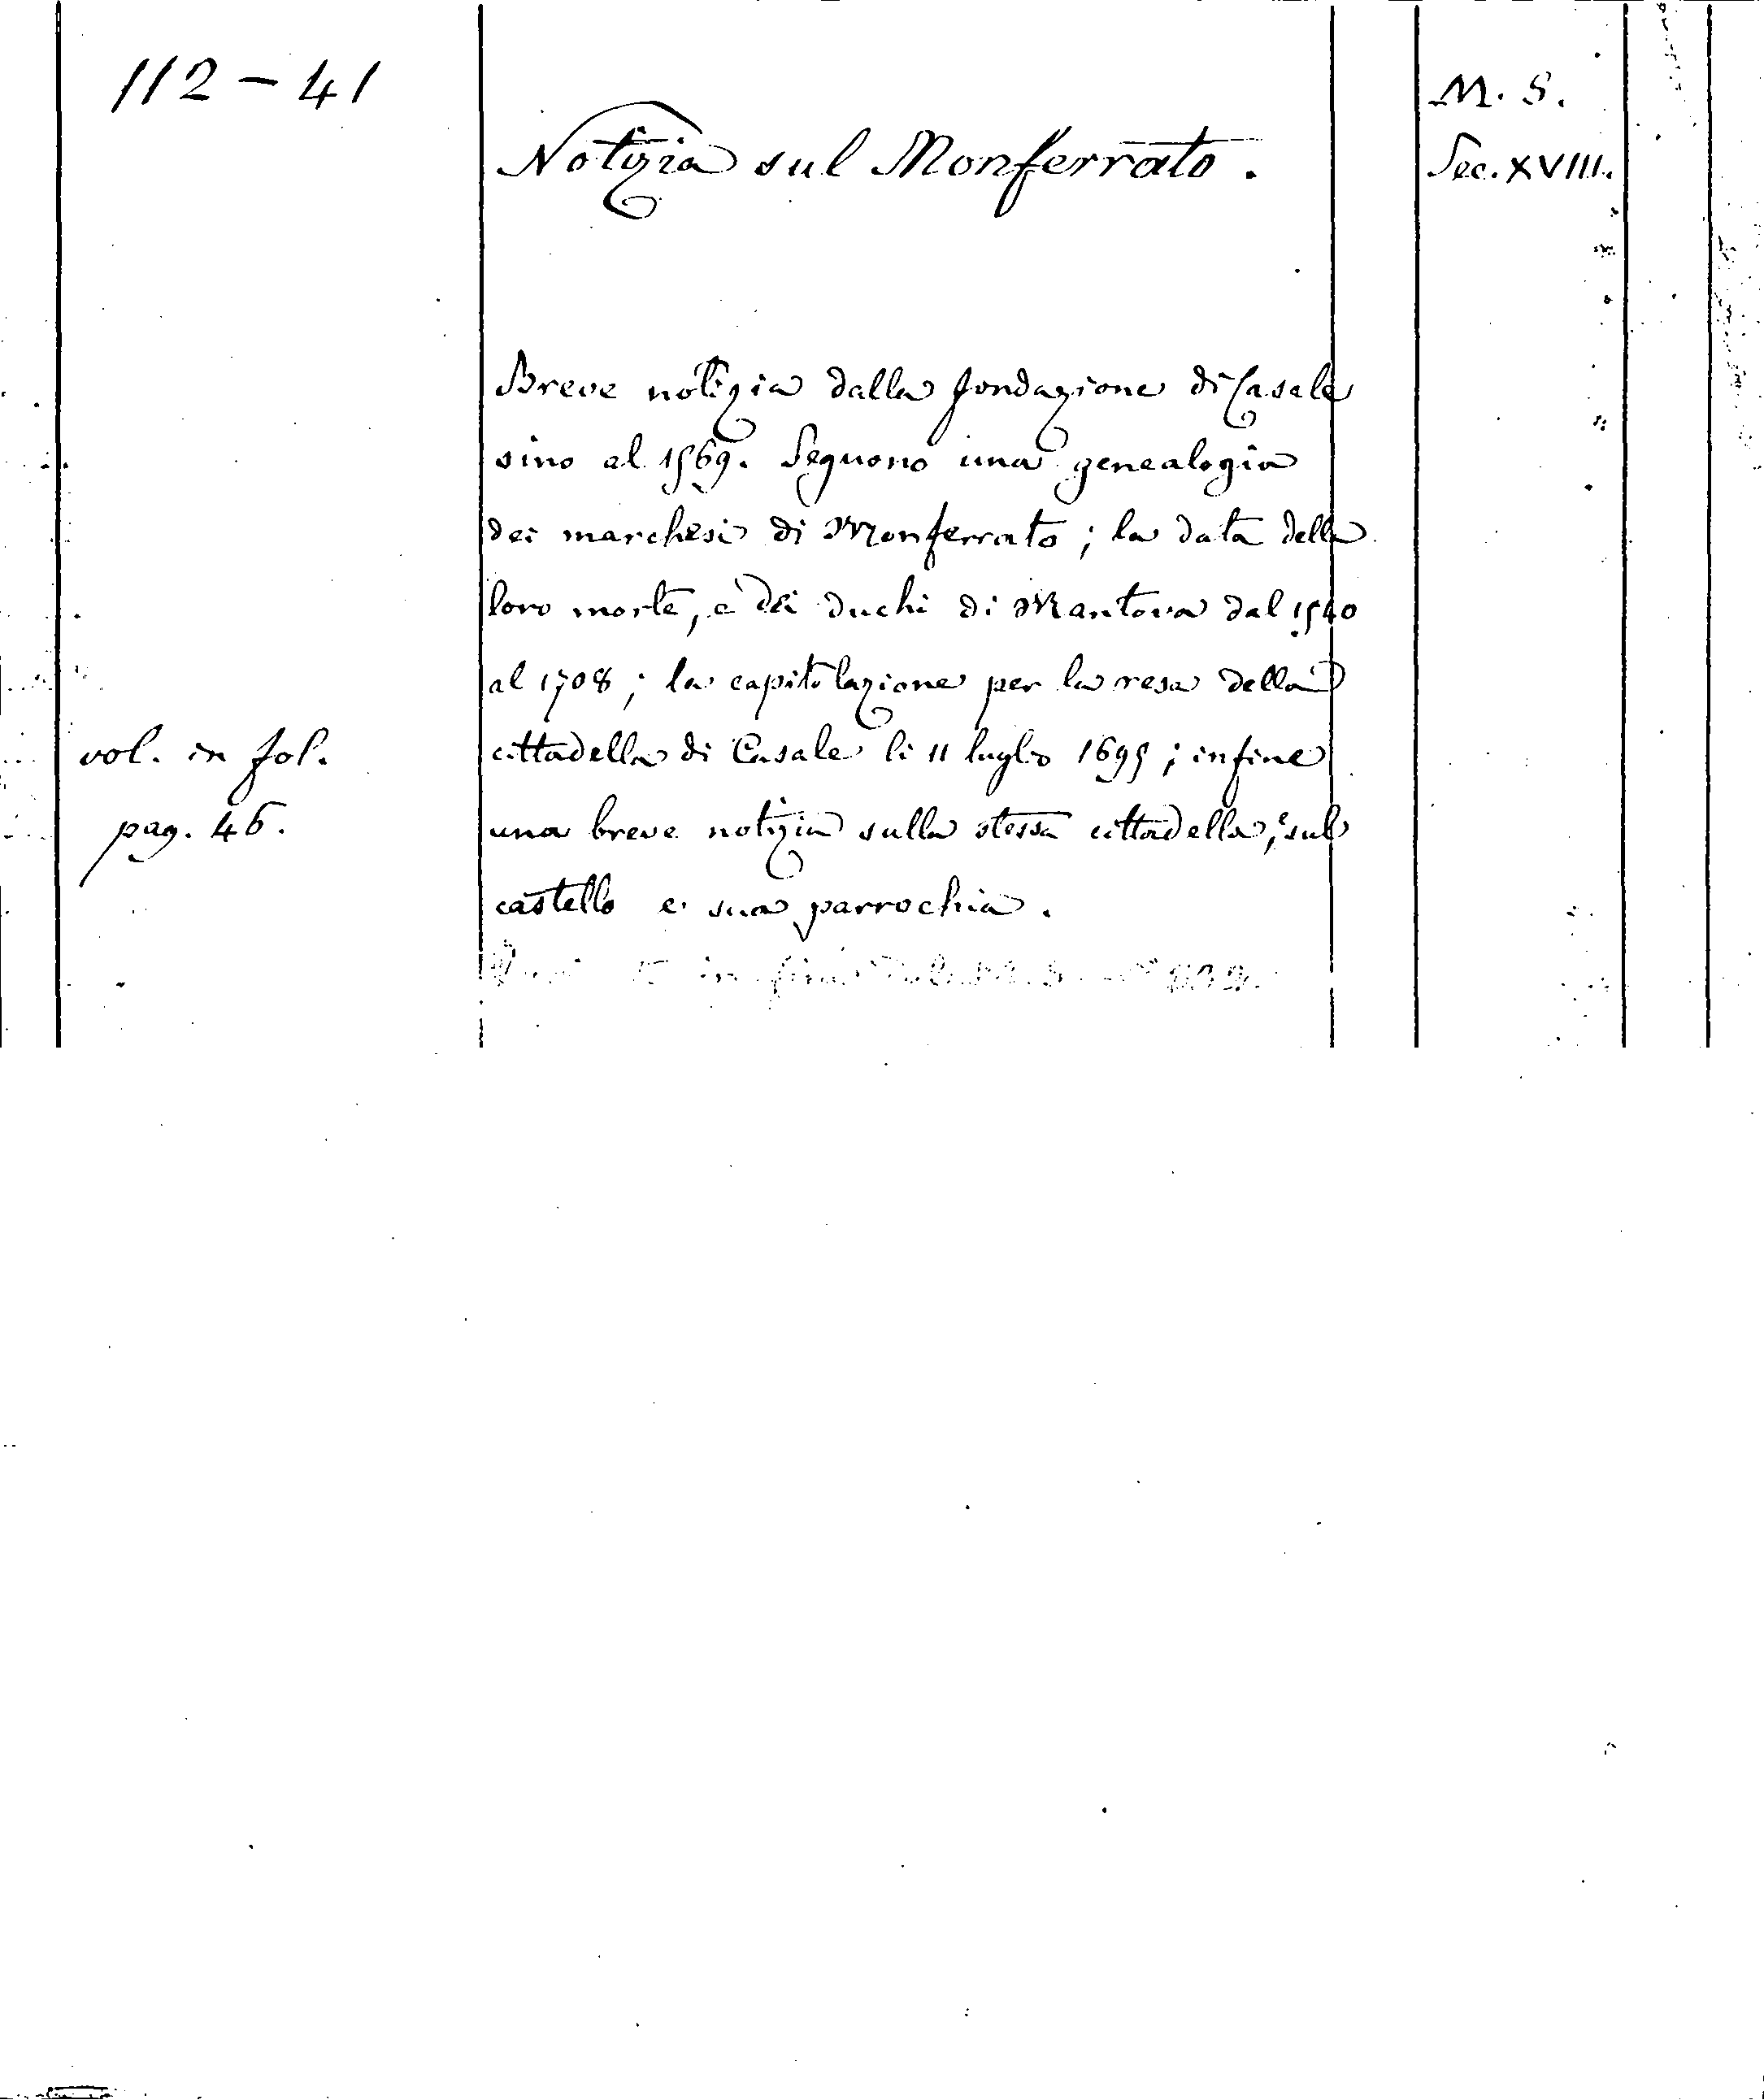 112 - 41
Notizia sul Monferrato.
M. S.
Sec. XVIII.
Breve notizia dalla fondazione di Casale
sino al 1569. Seguono una genealogia
dei marchesi di Monferrato; la data della
loro morte, e dei duchi di Mantova dal 1540
al 1708; la capitolazione per la resa della
cittadella di Casale li 11 luglio 1695; infine
vol. in fol.
pag. 46.
una breve notizia sulla stessa cittadella, e sul
castello e sua parrochia.
in fine